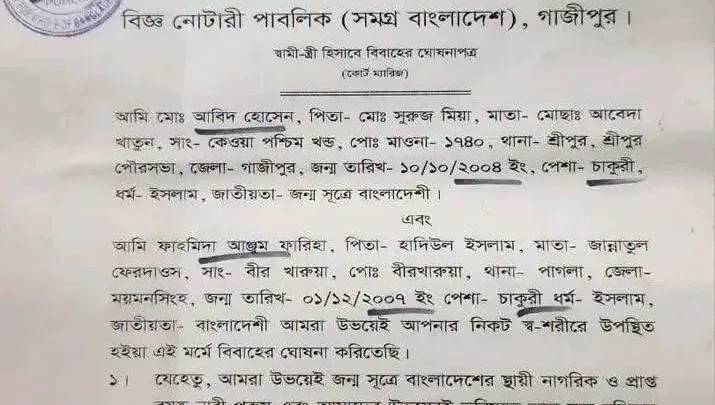 বিজ্ঞ নোটারী পাবলিক (সমগ্র বাংলাদেশ), গাজীপুর।
স্বামী-স্ত্রী হিসাবে বিবাহের ঘোষনাপত্র
(কোর্ট ম্যারিজ)
আমি মোঃ আবিদ হোসেন, পিতা- মোঃ সুরুজ মিয়া, মাতা- মোছাঃ আবেদা
খাতুন, সাং- কেওয়া পশ্চিম খন্ড, পোঃ মাওনা- ১৭৪০, থানা- শ্রীপুর, শ্রীপুর
পৌরসভা, জেলা- গাজীপুর, জন্ম তারিখ- ১০/১০/২০০৪ ইং, পেশা- চাকুরী,
ধর্ম- ইসলাম, জাতীয়তা- জন্ম সূত্রে বাংলাদেশী।
এবং
আমি ফাহমিদা আঞ্জুম ফারিহা, পিতা- হাদিউল ইসলাম, মাতা- জান্নাতুল
ফেরদাওস, সাং- বীর খারুয়া, পোঃ বীরখারুয়া, থানা- পাগলা, জেলা-
ময়মনসিংহ, জন্ম তারিখ- ০১/১২/২০০৭ ইং পেশা- চাকুরী ধর্ম- ইসলাম,
জাতীয়তা- বাংলাদেশী আমরা উভয়েই আপনার নিকট স্ব-শরীরে উপস্থিত
হইয়া এই মর্মে বিবাহের ঘোষনা করিতেছি।
১। যেহেতু, আমরা উভয়েই জন্ম সূত্রে বাংলাদেশের স্থায়ী নাগরিক ও প্রাপ্ত